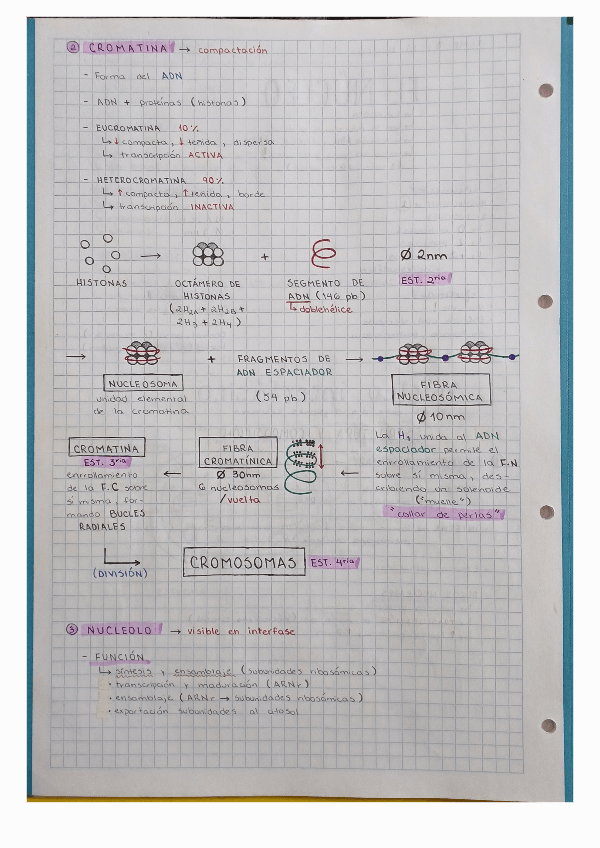 ② CROMATINA → compactación
- Forma del ADN
- ADN + proteínas (histonas)
- EUCROMATINA 10%
↳ ↓ compacta, ↓ teñida, dispersa
↳ transcripción ACTIVA
- HETEROCROMATINA 90%
↳ ↑ compacta, ↑ teñida, borde
↳ transcripción INACTIVA
HISTONAS
→
OCTÁMERO DE
HISTONAS
(2H2A + 2H2B +
2H3 + 2H4)
+
SEGMENTO DE
ADN (146 pb)
↳ doblehélice
Ø 2nm
EST. 2ria
→
NUCLEOSOMA
unidad elemental
de la cromatina
+
FRAGMENTOS DE
ADN ESPACIADOR
(54 pb)
→
FIBRA
NUCLEOSÓMICA
Ø 10nm
La H1 unida al ADN
espaciador permite el
enrrollamiento de la F.N
sobre sí misma, des-
cribiendo un solenoide
("muelle")
"collar de perlas"
←
FIBRA
CROMATÍNICA
Ø 30nm
6 nucleosomas
/vuelta
←
CROMATINA
EST. 3ria
enrrollamiento
de la F.C sobre
sí misma, for-
mando BUCLES
RADIALES
(DIVISIÓN)
CROMOSOMAS EST. 4ria
③ NUCLEOLO → visible en interfase
- FUNCIÓN
↳ síntesis y ensamblaje (subunidades ribosómicas)
• transcripción y maduración (ARNr)
• ensamblaje (ARNr → subunidades ribosómicas)
• exportación subunidades al citosol